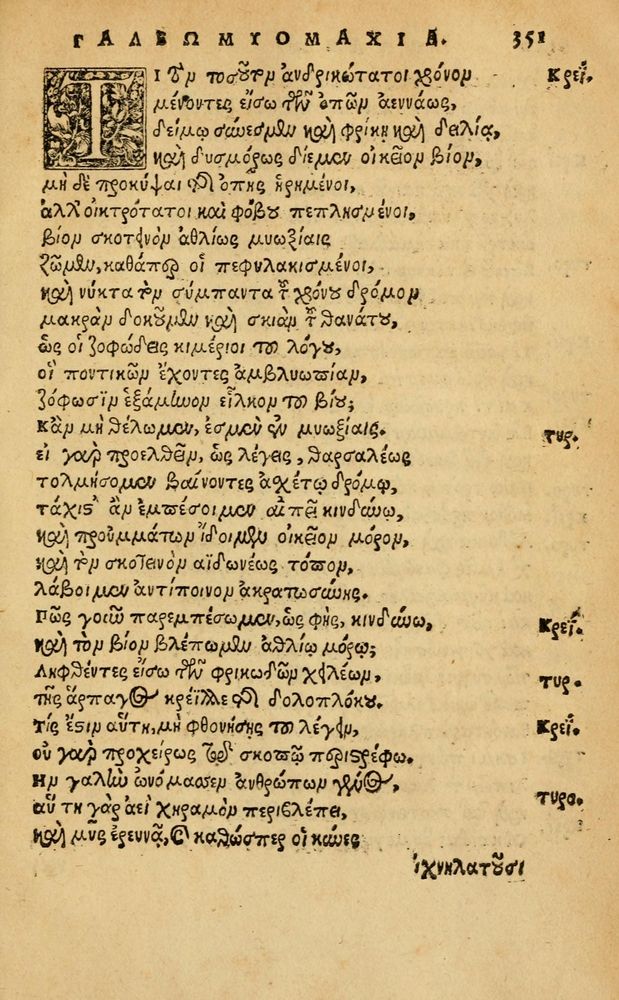 ΓΑΛΕΩΜΥΟΜΑΧΙΑ. 351
ΤΙ τὸν τοσοῦτον ἀνδρικώτατοι χρόνον Κρεΐ.
μένοντες εἴσω τῶν ὀπῶν ἀεννάως,
δείμῳ σύνεσμεν καὶ φρίκῃ καὶ δειλίᾳ,
καὶ δυσμόρως δίεμεν οἰκεῖον βίον,
μὴ δὲ προκύψαι τῆς ὀπῆς ᾑρημένοι,
ἀλλ' οἰκτρότατοι καὶ φόβου πεπλησμένοι,
βίον σκοτεινὸν ἀθλίως μυωξίαις
ζῶμεν, καθάπερ οἱ πεφυλακισμένοι,
καὶ νύκτα τὸν σύμπαντα τοῦ χρόνου δρόμον
μακρὰν δοκοῦμεν καὶ σκιὰν τοῦ θανάτου,
ὡς οἱ ζοφώδεις κιμέριοι τοῦ λόγου,
οἳ ποντικῶν ἔχοντες ἀμβλυωπίαν,
ζόφωσιν ἑξάμηνον εἷλκον τοῦ βίου;
Κἂν μὴ θέλωμεν, ἐσμὲν ἐν μυωξίαις. τυρ.
εἰ γὰρ προελθεῖν, ὡς λέγεις, θαρσαλέως
τολμήσομεν βαίνοντες ἀχέτῳ δρόμῳ,
τάχιστ' ἂν ἐμπέσοιμεν αἰπεῖ κινδύνῳ,
καὶ προὐμμάτων ἴδοιμεν οἰκεῖον μόρον,
καὶ τὸν σκοτεινὸν αϊδωνέως τόπον,
λάβοιμεν ἀντίποινον ἀκρατωσύνης.
Πῶς γοῦν παρεμπέσωμεν, ὡς φῂς, κινδύνῳ, Κρεΐ.
καὶ τὸν βίον βλέπωμεν ἀθλίῳ μόρῳ;
Ληφθέντες εἴσω τῶν φρικωδῶν χειλέων, τυρ.
τῆς ἅρπαγος κρείλλης τε δολοπλόκου.
Τίς ἔστιν αὕτη, μὴ φθονήσῃς τοῦ λέγειν, Κρεΐ.
οὐ γὰρ προχείρως τῷδε σκοπῷ περιστρέφω.
Ην γαλῆν ὠνόμασεν ἀνθρώπων γένος, τυρο.
αὕτη γὰρ ἀεὶ χηραμὸν περιβλέπει,
καὶ μῦς ἐρευνᾷ, καὶ καθώσπερ οἱ κύνες
ἰχνηλατοῦσι